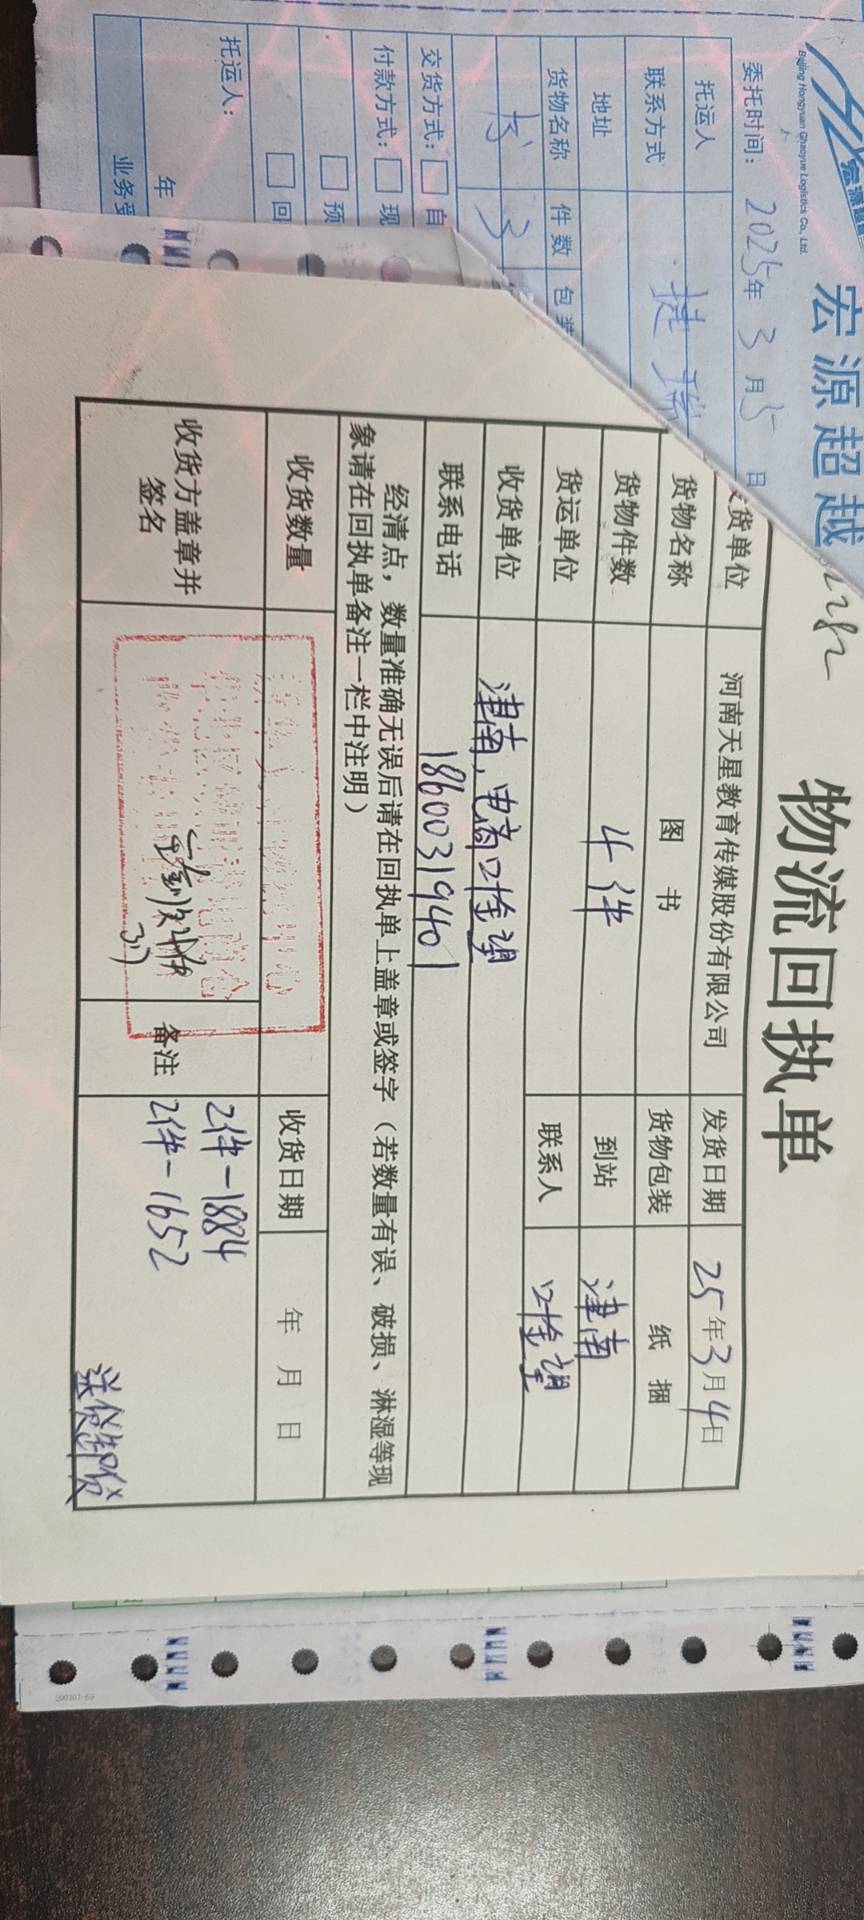 宏源超越
Beijing Hongyuan Chaoyue Logistics Co., Ltd.
委托时间: 2025年 3月5日
托运人 捷瑞
联系方式
地址
货物名称 件数 包装
书 3
交货方式: □自
付款方式: □现
□预
□回
托运人:
年
业务受
物流回执单
发货单位 河南天星教育传媒股份有限公司 发货日期 25年3月4日
货物名称 图书 货物包装 纸捆
货物件数 4件 到站 津南
货运单位 联系人
收货单位 津南,电商
联系电话 18600319401
经清点，数量准确无误后请在回执单上盖章或签字（若数量有误、破损、淋湿等现
象请在回执单备注一栏中注明）
收货数量 收货日期 年 月 日
收货方盖章并
签名
备注
2件-1884
2件-1652
送货卸货